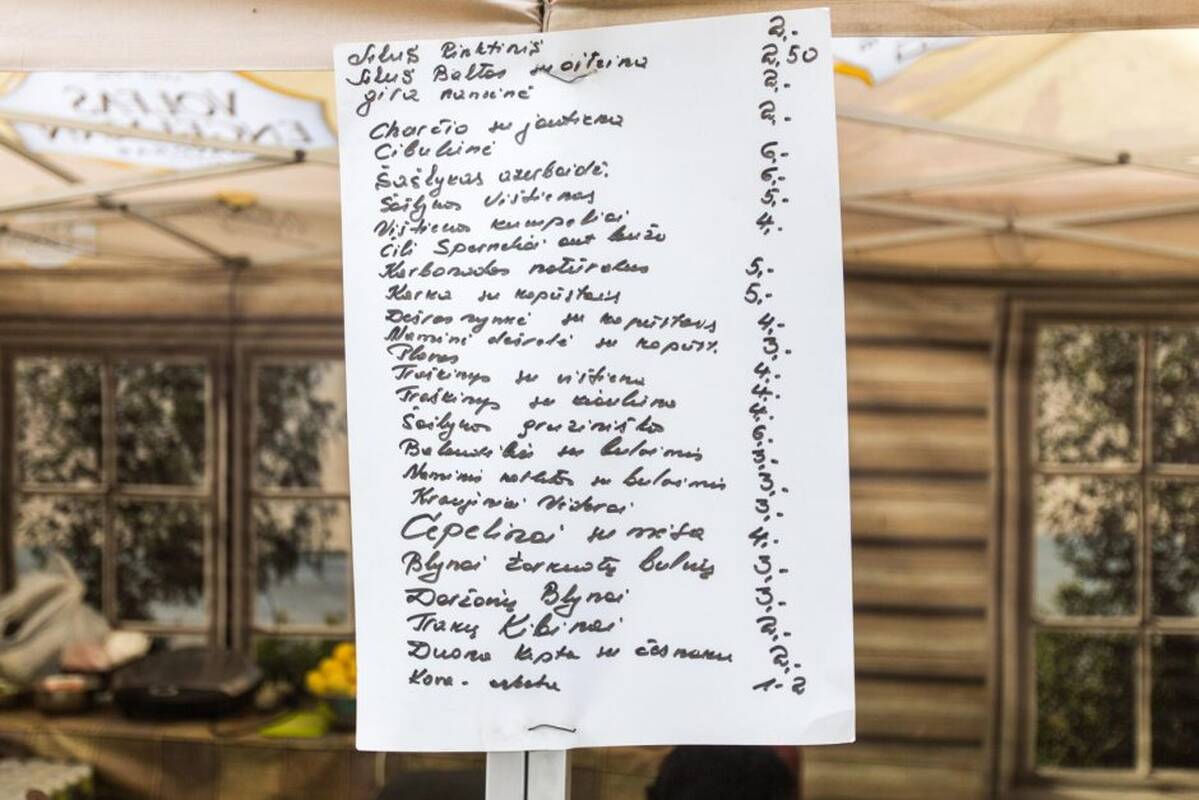 VOLFAS
ENGELMAN
Alus Rinktinis 2,-
Alus Baltas su citrina 2,50
gira naminė 2,-
Charčio su jautiena 2,-
Cibulinė
Šašlykas azerbaidž. 6,-
Šašlykas Vištienas 6,-
Vištienos kumpeliai 5,-
Čili Sparneliai ant laužo 4,-
Karbonadas natūralus
Karka su kopūstais 5,-
Dešra rynnė su kopūstais 5,-
Naminė dešrelė su kopūst. 4,-
Plovas 3,-
Troškinys su vištiena 4,-
Troškinys su kiauliena 4,-
Šašlykas gruziniško 4,-
Balandėliai su bulvėmis 6,-
Naminis kotletas su bulvėmis 3,-
Kraujiniai Vėdarai 3,-
Cepelinai su mėsa 4,-
Blynai žarkuotų bulvių 3,-
Daržovių Blynai 3,-
Trakų Kibinai 2,-
Duona kepta su česnaku 2,-
Kava - arbata 1-2